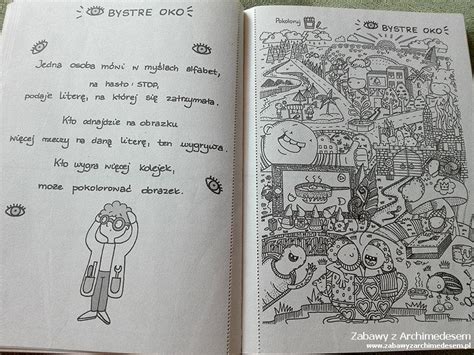 BYSTRE OKO
Jedna osoba mówi w myślach alfabet,
na hasło STOP,
podaje literę, na której się zatrzymała.
Kto odnajdzie na obrazku
więcej rzeczy na daną literę, ten wygrywa.
Kto wygra więcej kolejek,
może pokolorować obrazek.
Pokoloruj
BYSTRE OKO
Zabawy z Archimedesem
www.zabawyzarchimedesem.pl